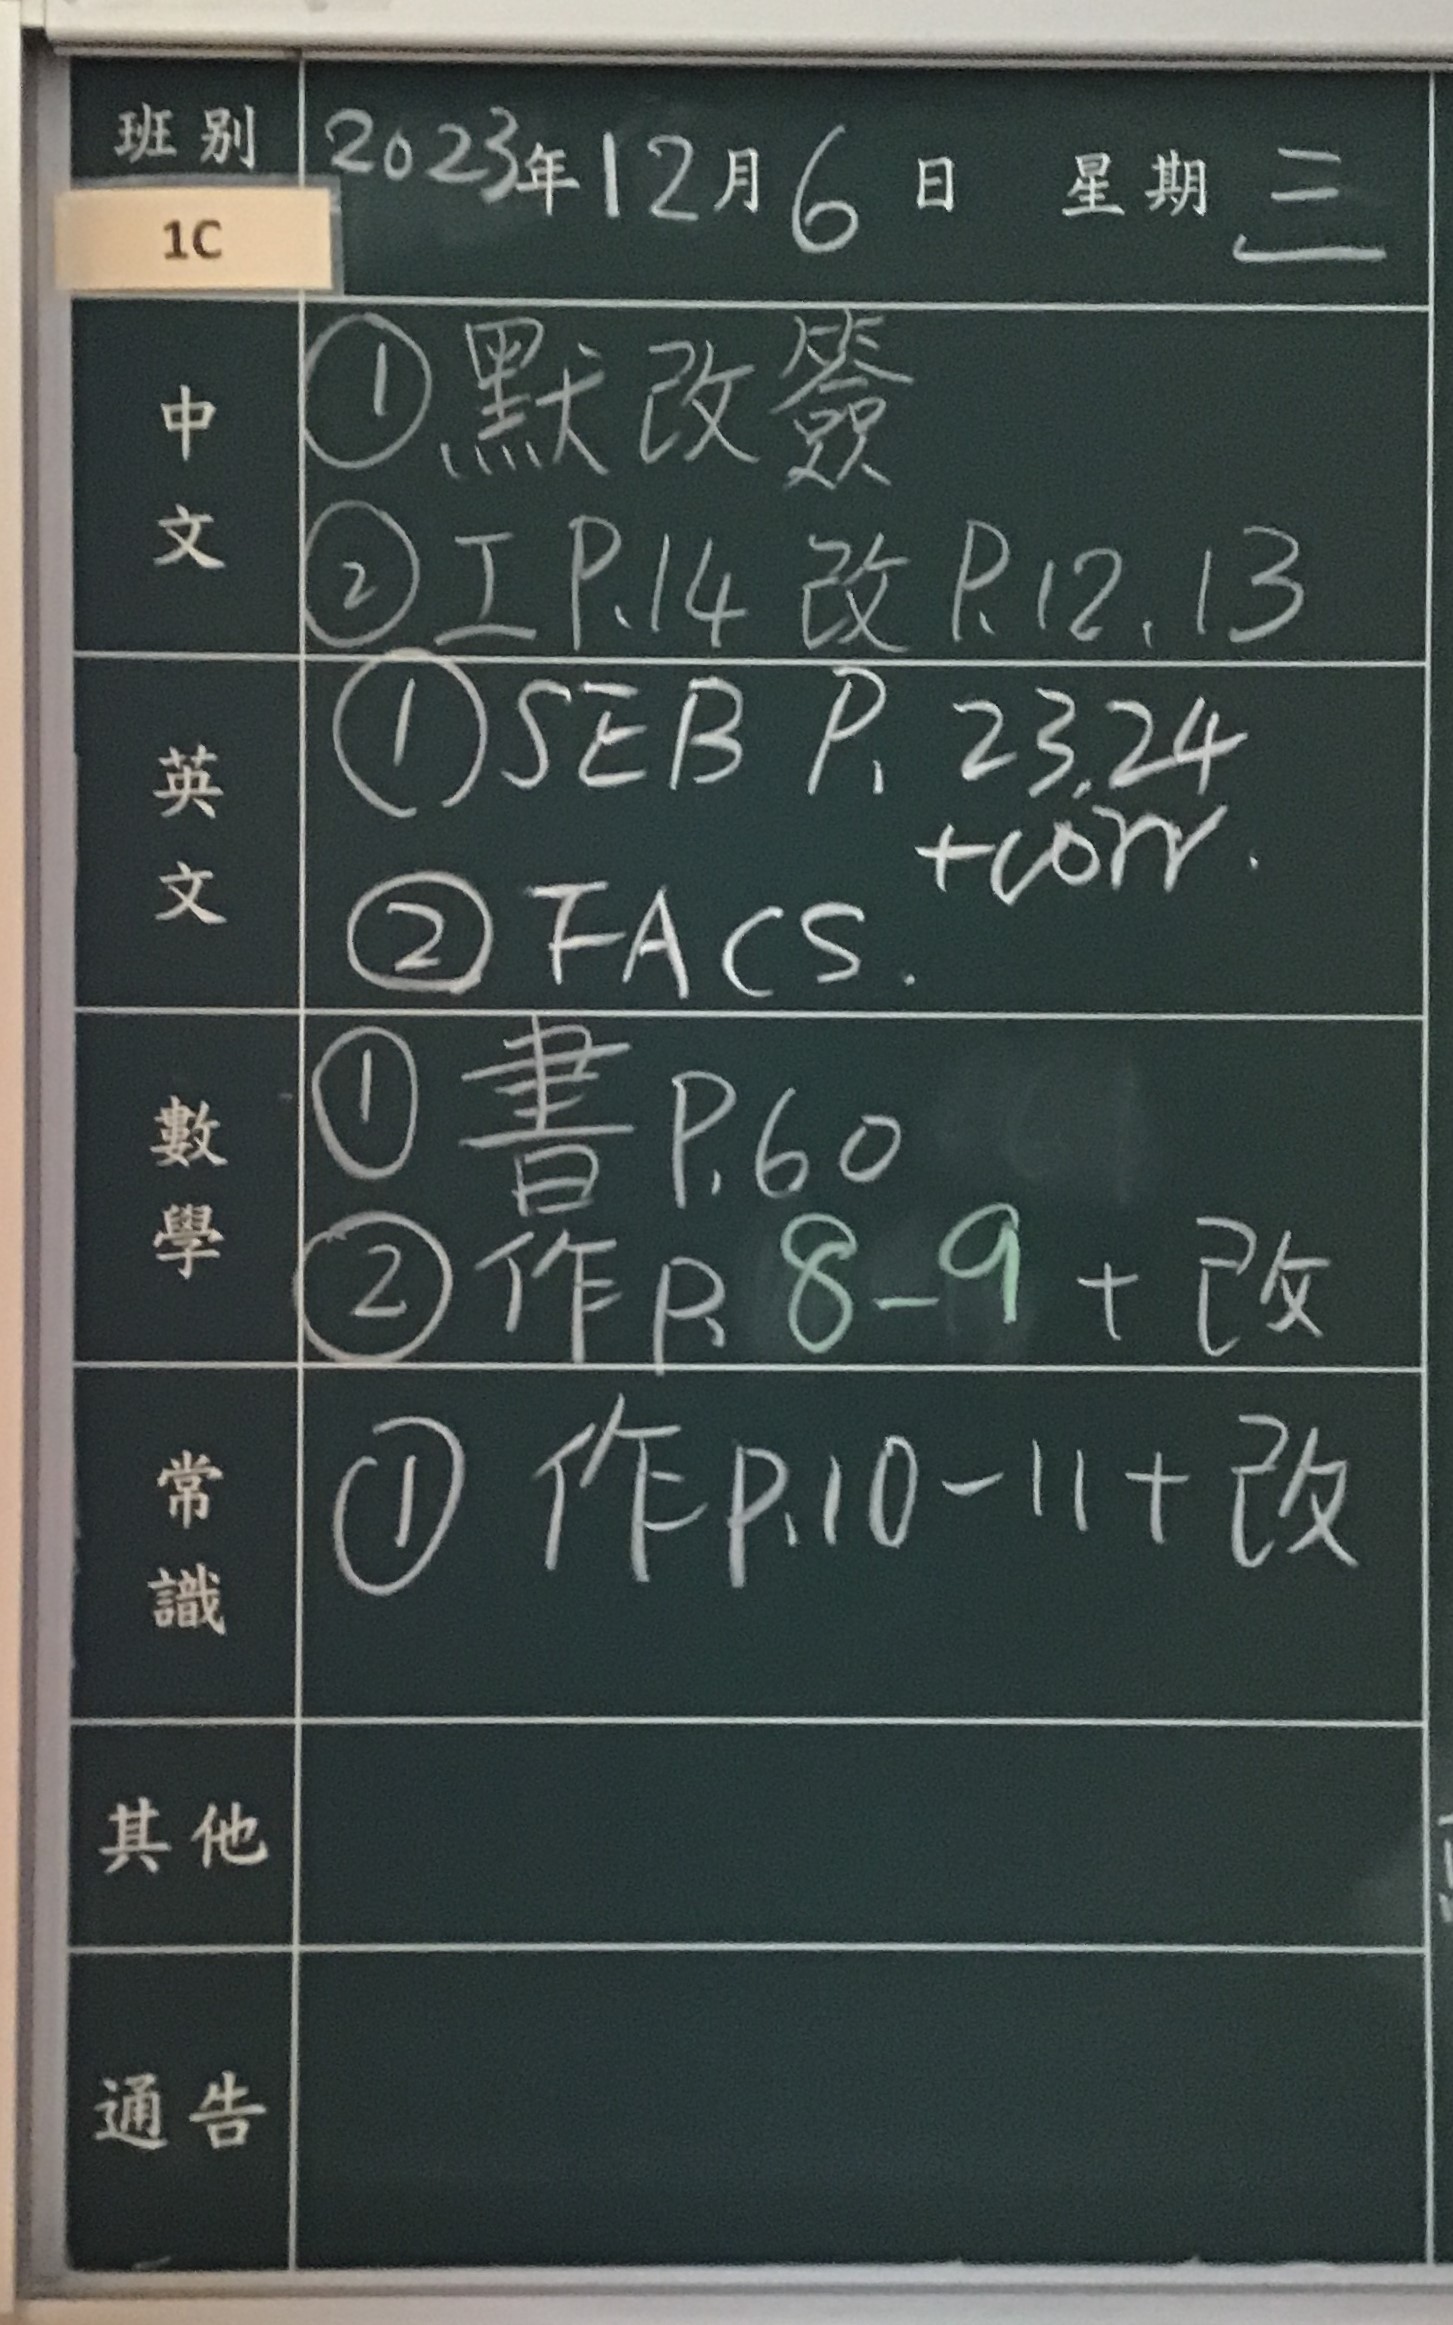 班別 2023年12月6日 星期三
1C
中文
①默改簽
②工P.14 改P.12,13
英文
①SEB P. 23,24
+corr.
②FACS.
數學
①書P.60
②作P.8-9+改
常識
①作P.10-11+改
其他
通告